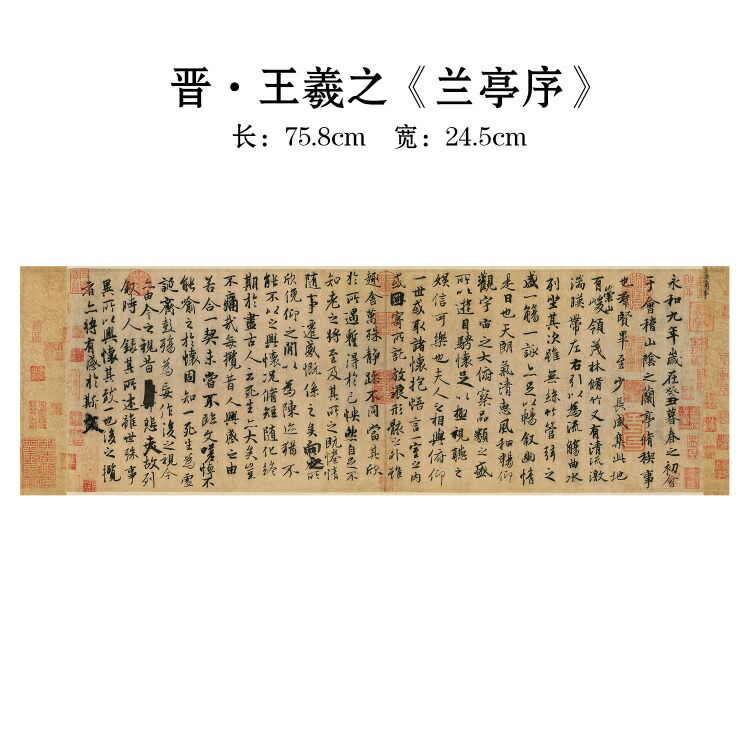 晋·王羲之《兰亭序》
长：75.8cm 宽：24.5cm
永和九年歲在癸丑暮春之初會
于會稽山陰之蘭亭脩稧事
也群賢畢至少長咸集此地
有崇山峻領茂林脩竹又有清流激
湍暎帶左右引以為流觴曲水
列坐其次雖無絲竹管弦之
盛一觴一詠亦足以暢敘幽情
是日也天朗氣清惠風和暢仰
觀宇宙之大俯察品類之盛
所以遊目騁懷足以極視聽之
娛信可樂也夫人之相與俯仰
一世或取諸懷抱悟言一室之內
或因寄所託放浪形骸之外雖
趣舍萬殊靜躁不同當其欣
於所遇蹔得於己怏然自足不
知老之將至及其所之既惓情
隨事遷感慨係之矣向之所
欣俛仰之閒以為陳迹猶不
能不以之興懷況脩短隨化終
期於盡古人云死生亦大矣豈
不痛哉每攬昔人興感之由
若合一契未嘗不臨文嗟悼不
能喻之於懷固知一死生為虛
誕齊彭殤為妄作後之視今
亦由今之視昔悲夫故列
敘時人錄其所述雖世殊事
異所以興懷其致一也後之攬
者亦將有感於斯文